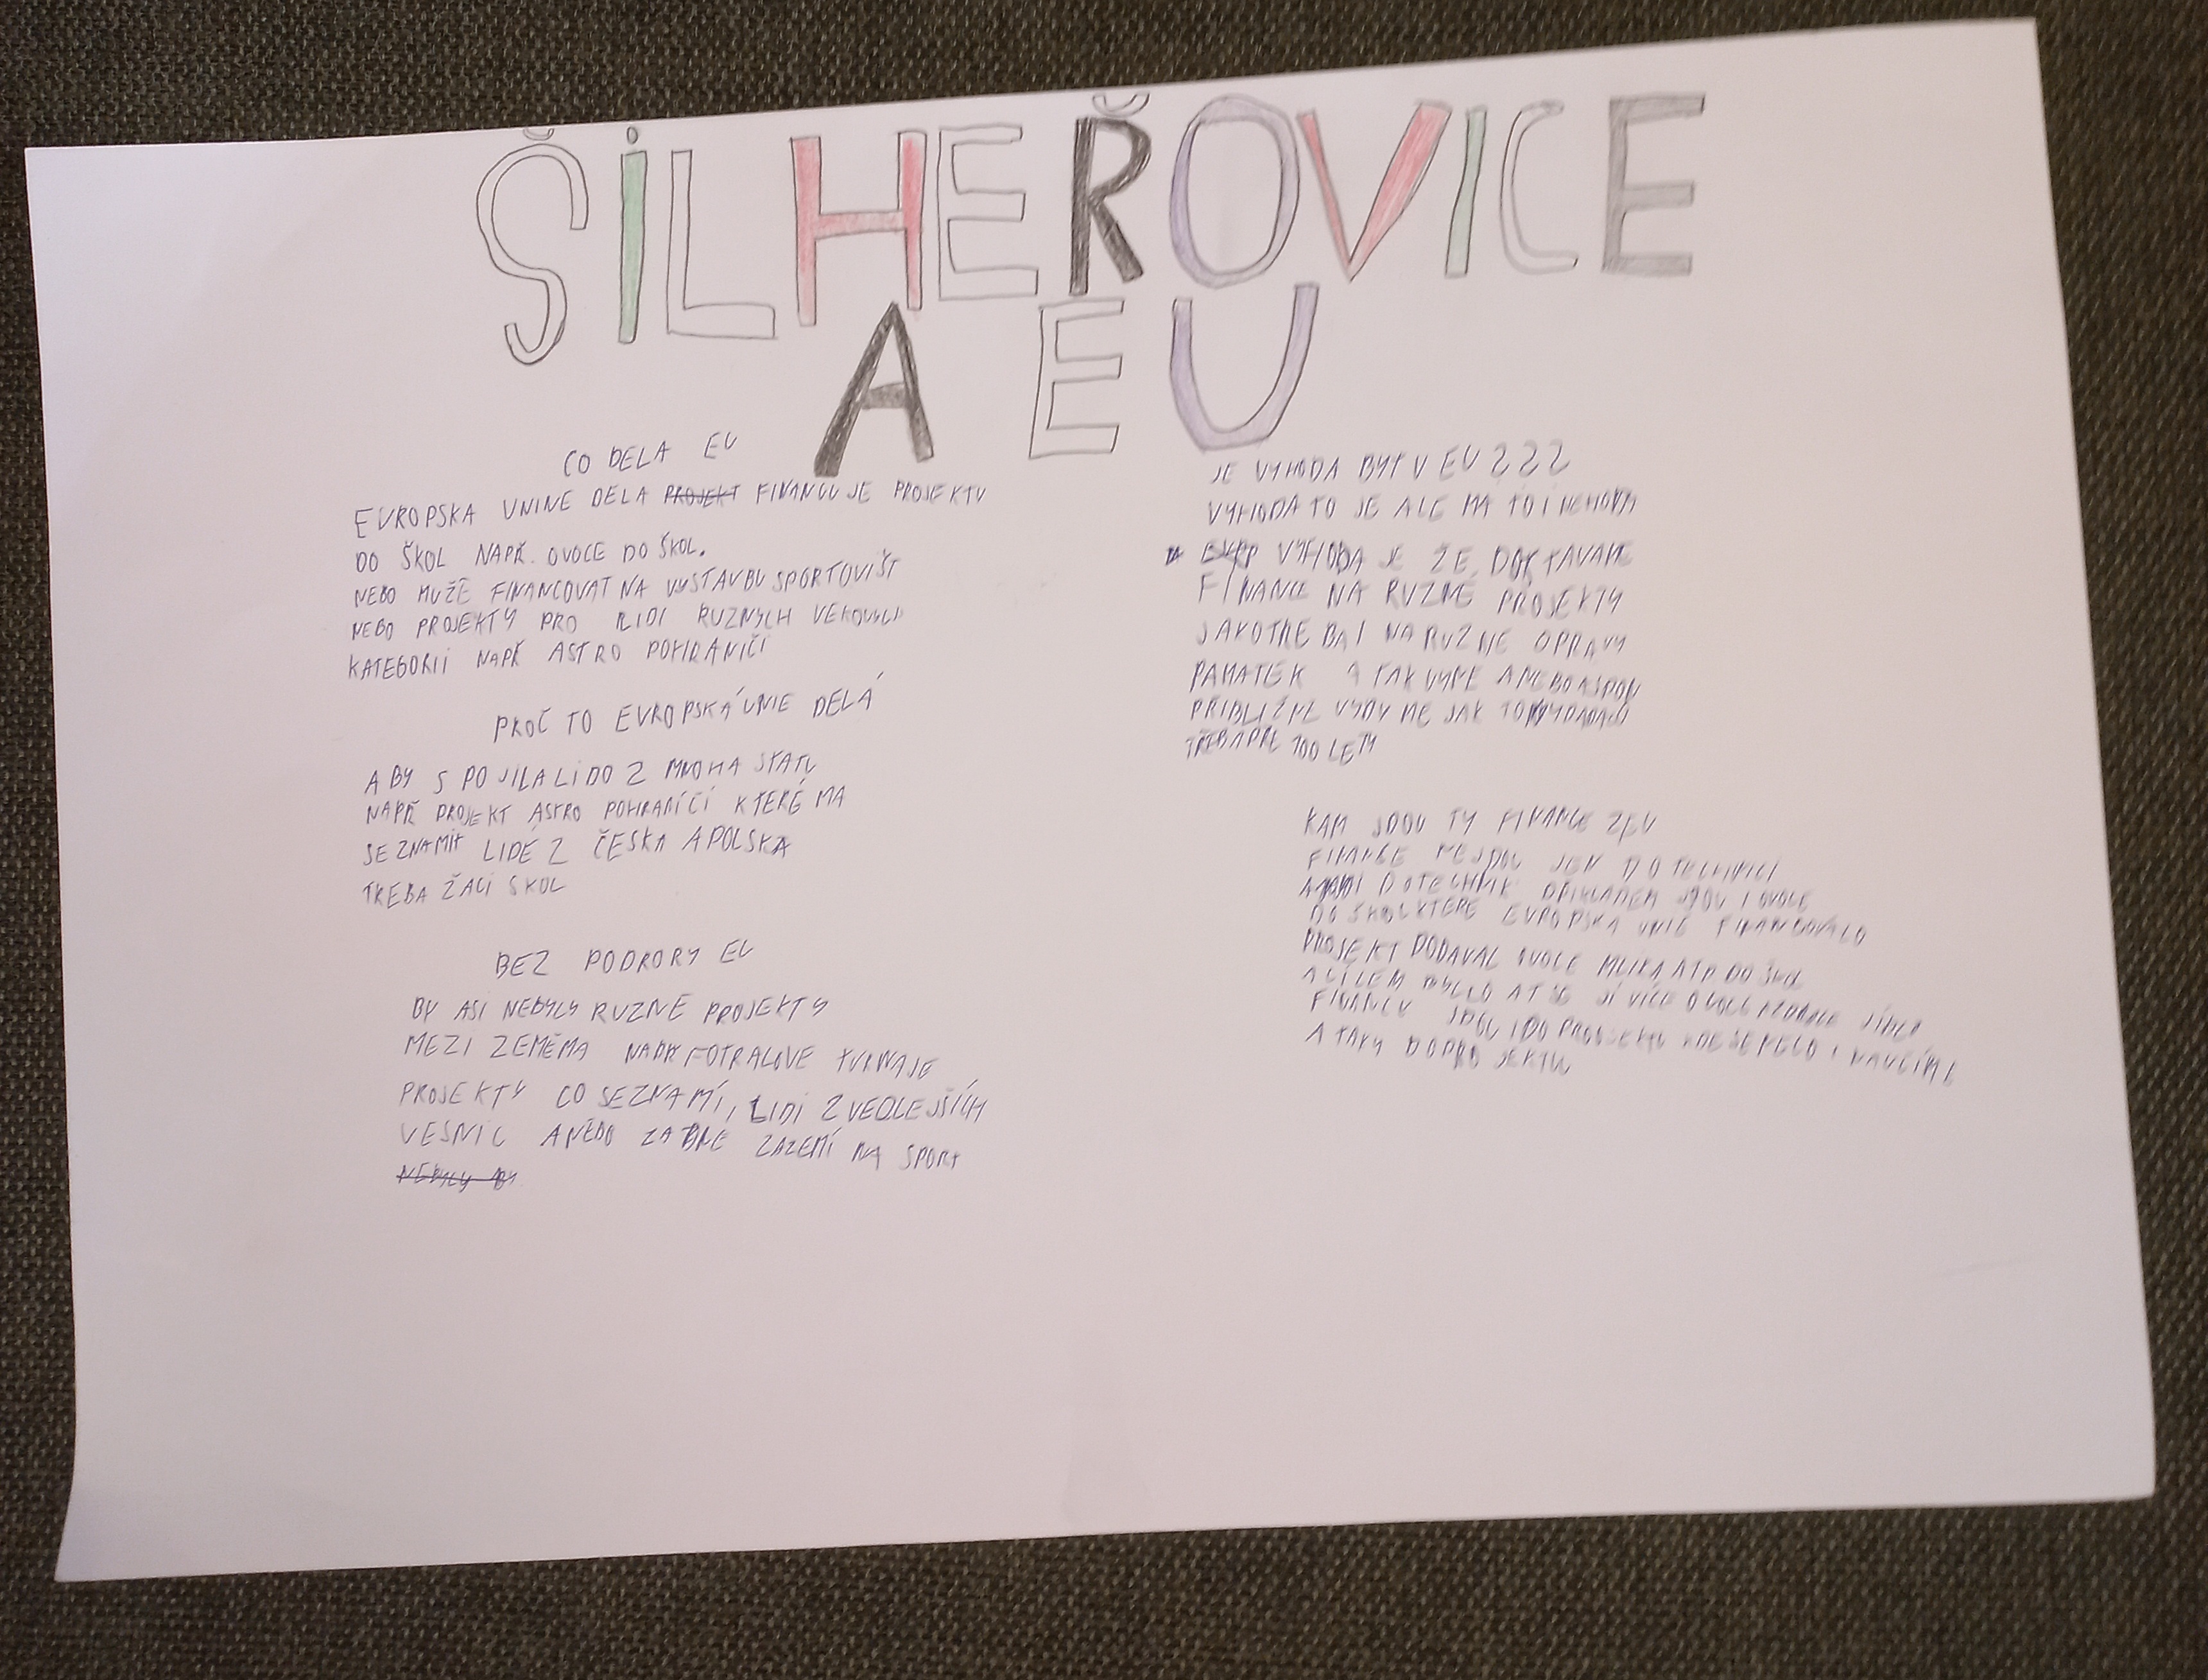 ŠILHEŘOVICE
A EU
CO DELA EU
EVROPSKA UNINE DELA PROJEKT FINANCUJE PROJEKTU
DO ŠKOL NAPŘ. OVOCE DO ŠKOL.
NEBO MUŽE FINANCOVAT NA VYSTAVBU SPORTOVIŠT
NEBO PROJEKTY PRO LIDI RUZNYCH VEKOVYCH
KATEGORII NAPŘ ASTRO POHRANIČI
PROČ TO EVROPSKÁ UNIE DELÁ
ABY SPOJILA LIDO Z MNOHA STATU
NAPŘ PROJEKT ASTRO POHRANÍČÍ KTERÉ MA
SEZNAMIT LIDÉ Z ČESKA A POLSKA
TREBA ŽACI SKOL
BEZ PODRORY EU
BY ASI NEBYLY RUZNE PROJEKTY
MEZI ZEMĚMA NAPŘ FOTBALOVE TURNAJE
PROJEKTY CO SEZNAMÍ, LIDI Z VEDLEJŠÍCH
VESNIC ANEBO ZAZEMÍ NA SPORT
NEBYLY BY
JE VYHODA BYT V EU ???
VYHODA TO JE ALE MA TO I
VÝHODA JE ŽE DOSTAVAME
FINANCE NA RUZNE PROJEKTY
JAKO TREBA I NA RUZNE OPRAVY
PAMATEK A TAK VIME ANEBO ASPON
PŘIBLIŽNE VIME JAK TO
TŘEBA PRE 100 LETY
KAM JDOU TY FINANCE Z EU
FINANCE NEJDOU JEN DO TECHNICI
DO TECHNIK PŘIKLADEM JDOU I OVOCE
DO ŠKOL KTERE EVROPSKA UNIE FINANCOVALO
PROJEKT DODAVAL OVOCE MLIKA ATD DO ŠKOL
A CÍLEM BYLLO AT SE JÍ VÍCE OVOCE
FINANCE JDOU I DO PROJEKTU KDE SE
A TAKY DO PROJEKTU